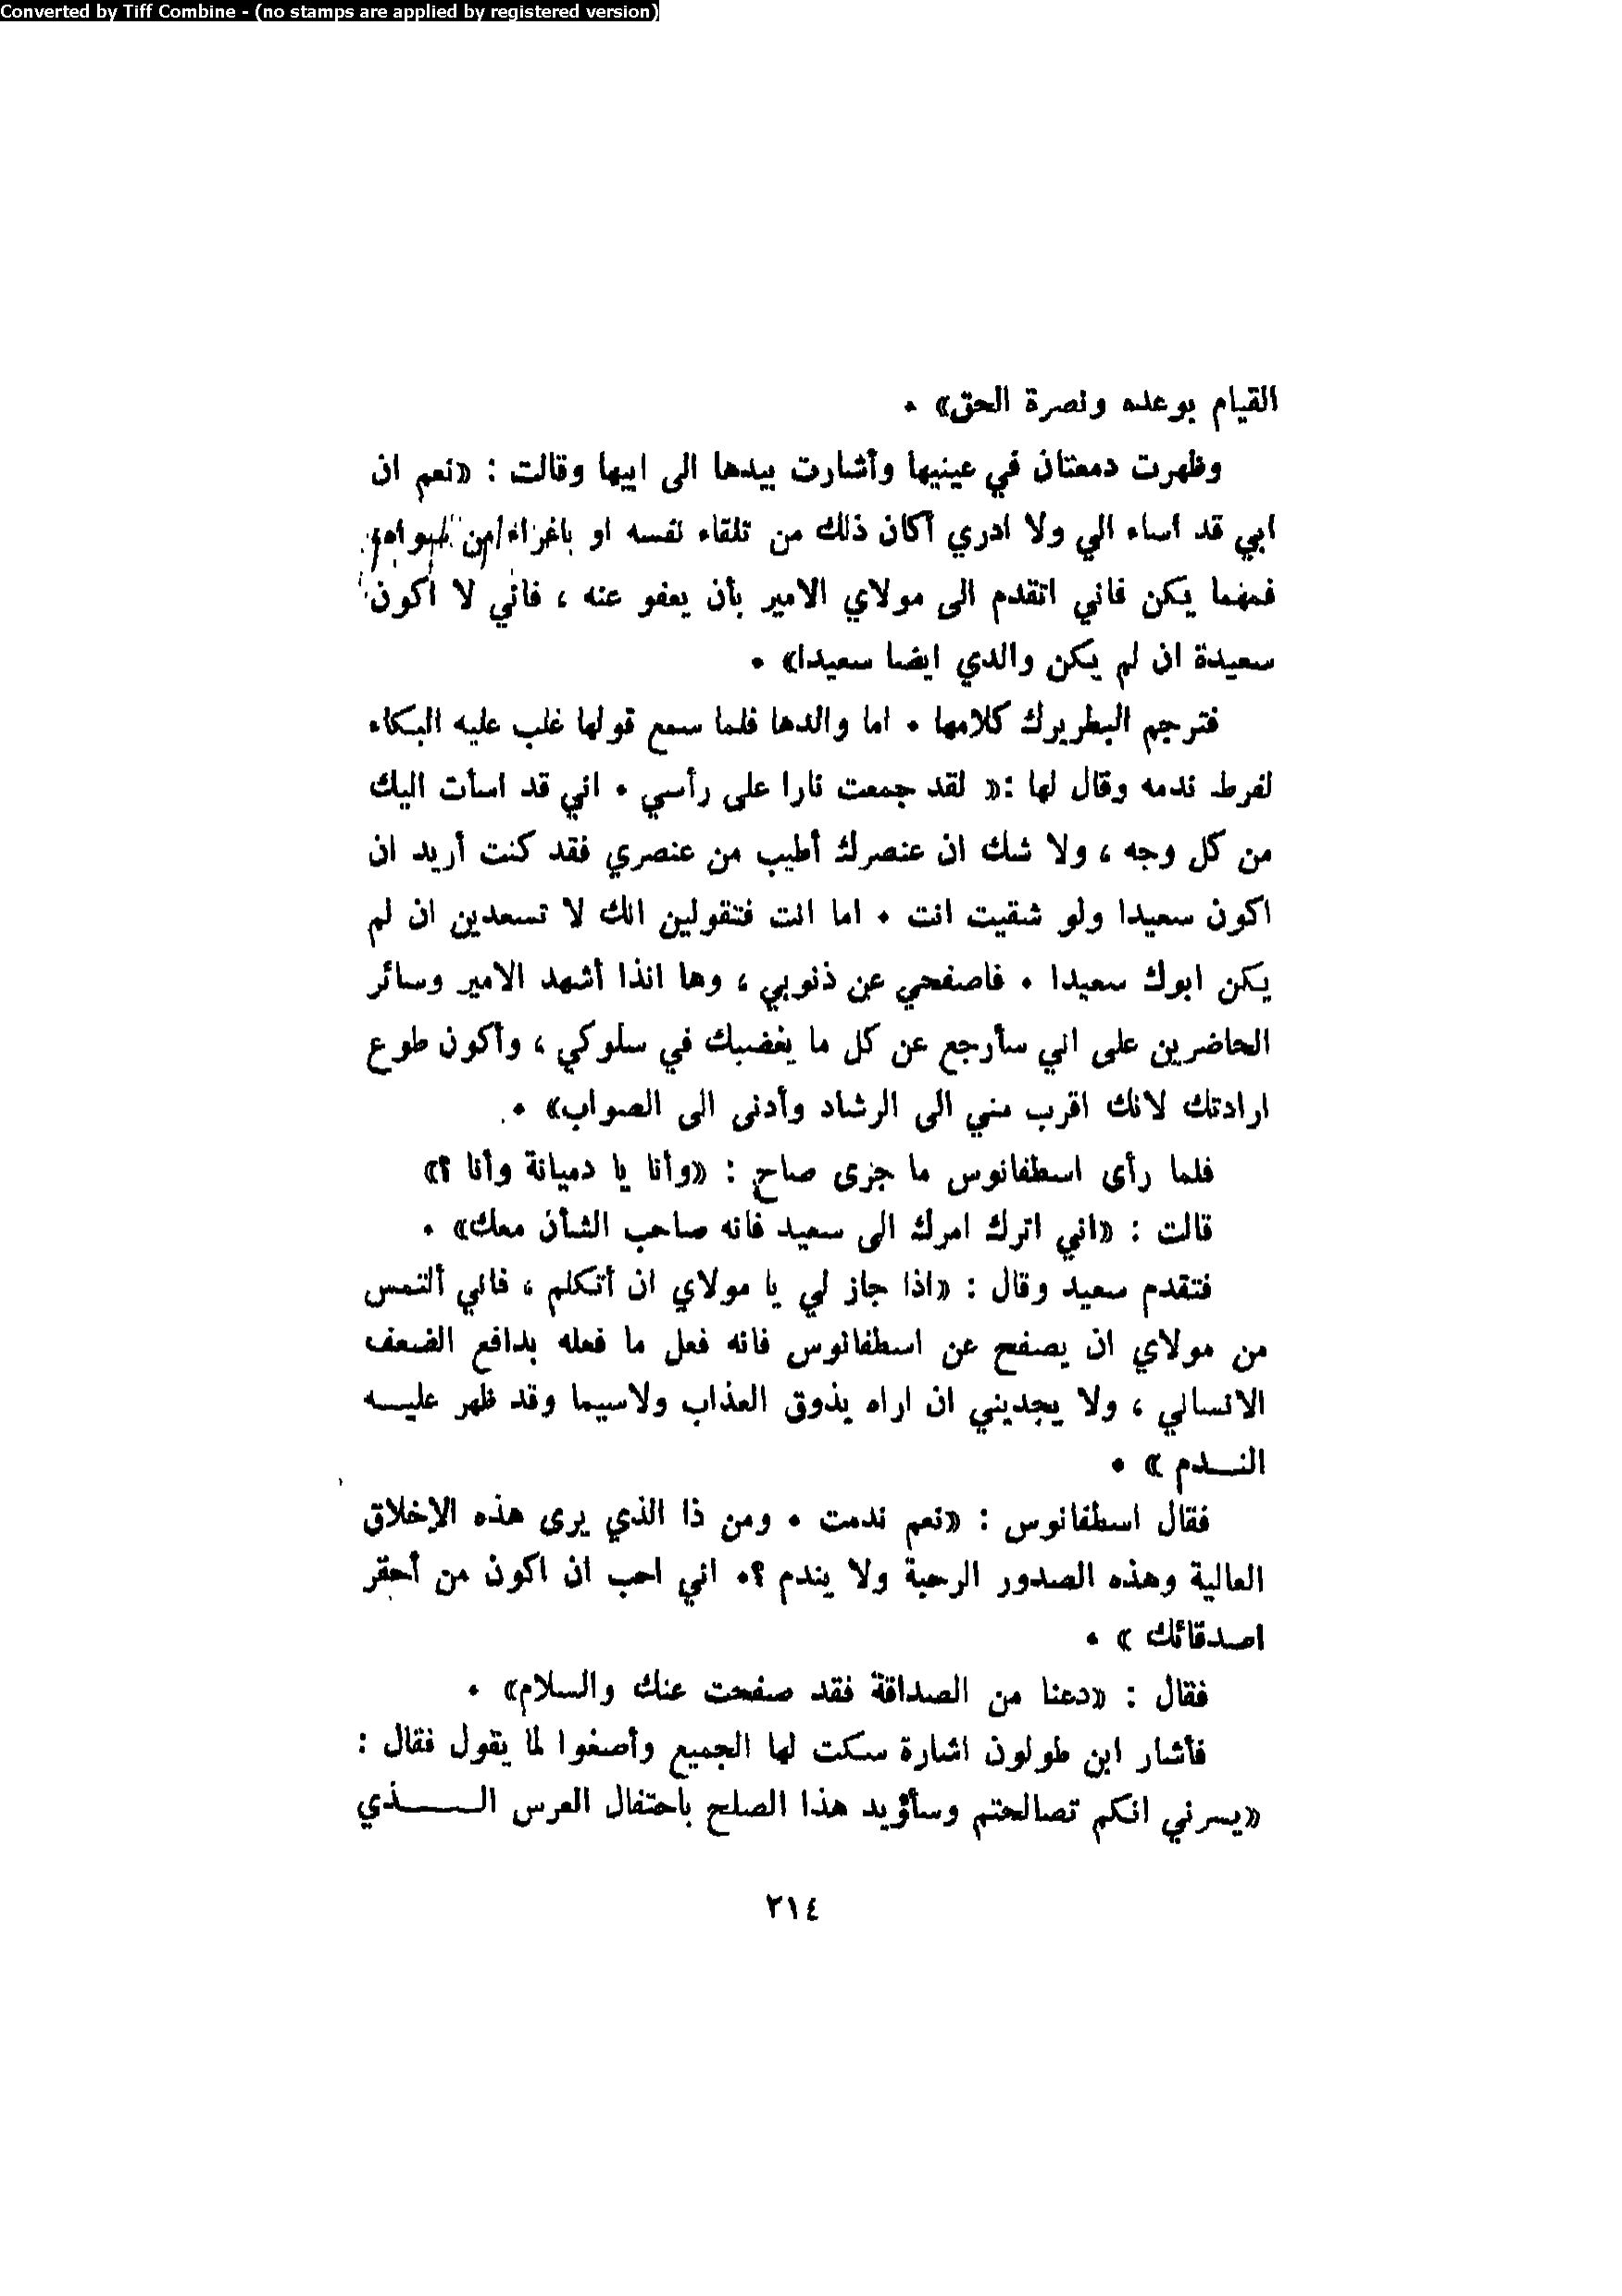 Converted by Tiff Combine - (no stamps are applied by registered version)
القيام بوعده ونصرة الحق» .
وظهرت دمعتان في عينيها وأشارت بيدها الى ابيها وقالت : «نعم ان
ابي قد اساء الي ولا ادري أكان ذلك من تلقاء نفسه او باغراء من سواه
فمهما يكن فاني اتقدم الى مولاي الامير بأن يعفو عنه ، فاني لا اكون
سعيدة ان لم يكن والدي ايضا سعيدا» .
فترجم البطريرك كلامها . اما والدها فلما سمع قولها غلب عليه البكاء
لفرط ندمه وقال لها :« لقد جمعت نارا على رأسي . اني قد اسأت اليك
من كل وجه ، ولا شك ان عنصرك أطيب من عنصري فقد كنت أريد ان
اكون سعيدا ولو شقيت انت . اما انت فتقولين انك لا تسعدين ان لم
يكن ابوك سعيدا . فاصفحي عن ذنوبي ، وها انذا أشهد الامير وسائر
الحاضرين على اني سأرجع عن كل ما يغضبك في سلوكي ، وأكون طوع
ارادتك لانك اقرب مني الى الرشاد وأدنى الى الصواب» .
فلما رأى اسطفانوس ما جرى صاح : «وأنا يا دميانة وأنا ؟»
قالت : «اني اترك امرك الى سعيد فانه صاحب الشأن معك» .
فتقدم سعيد وقال : «اذا جاز لي يا مولاي ان أتكلم ، فاني ألتمس
من مولاي ان يصفح عن اسطفانوس فانه فعل ما فعله بدافع الضعف
الانساني ، ولا يجديني ان اراه يذوق العذاب ولاسيما وقد ظهر عليـــه
النـــدم » .
فقال اسطفانوس : «نعم ندمت . ومن ذا الذي يرى هذه الاخلاق
العالية وهذه الصدور الرحبة ولا يندم ؟. اني احب ان اكون من أحقر
اصدقائك » .
فقال : «دعنا من الصداقة فقد صفحت عنك والسلام» .
فأشار ابن طولون اشارة سكت لها الجميع وأصغوا لما يقول فقال :
«يسرني انكم تصالحتم وسأؤيد هذا الصلح باحتفال العرس الــــــذي
٢١٤